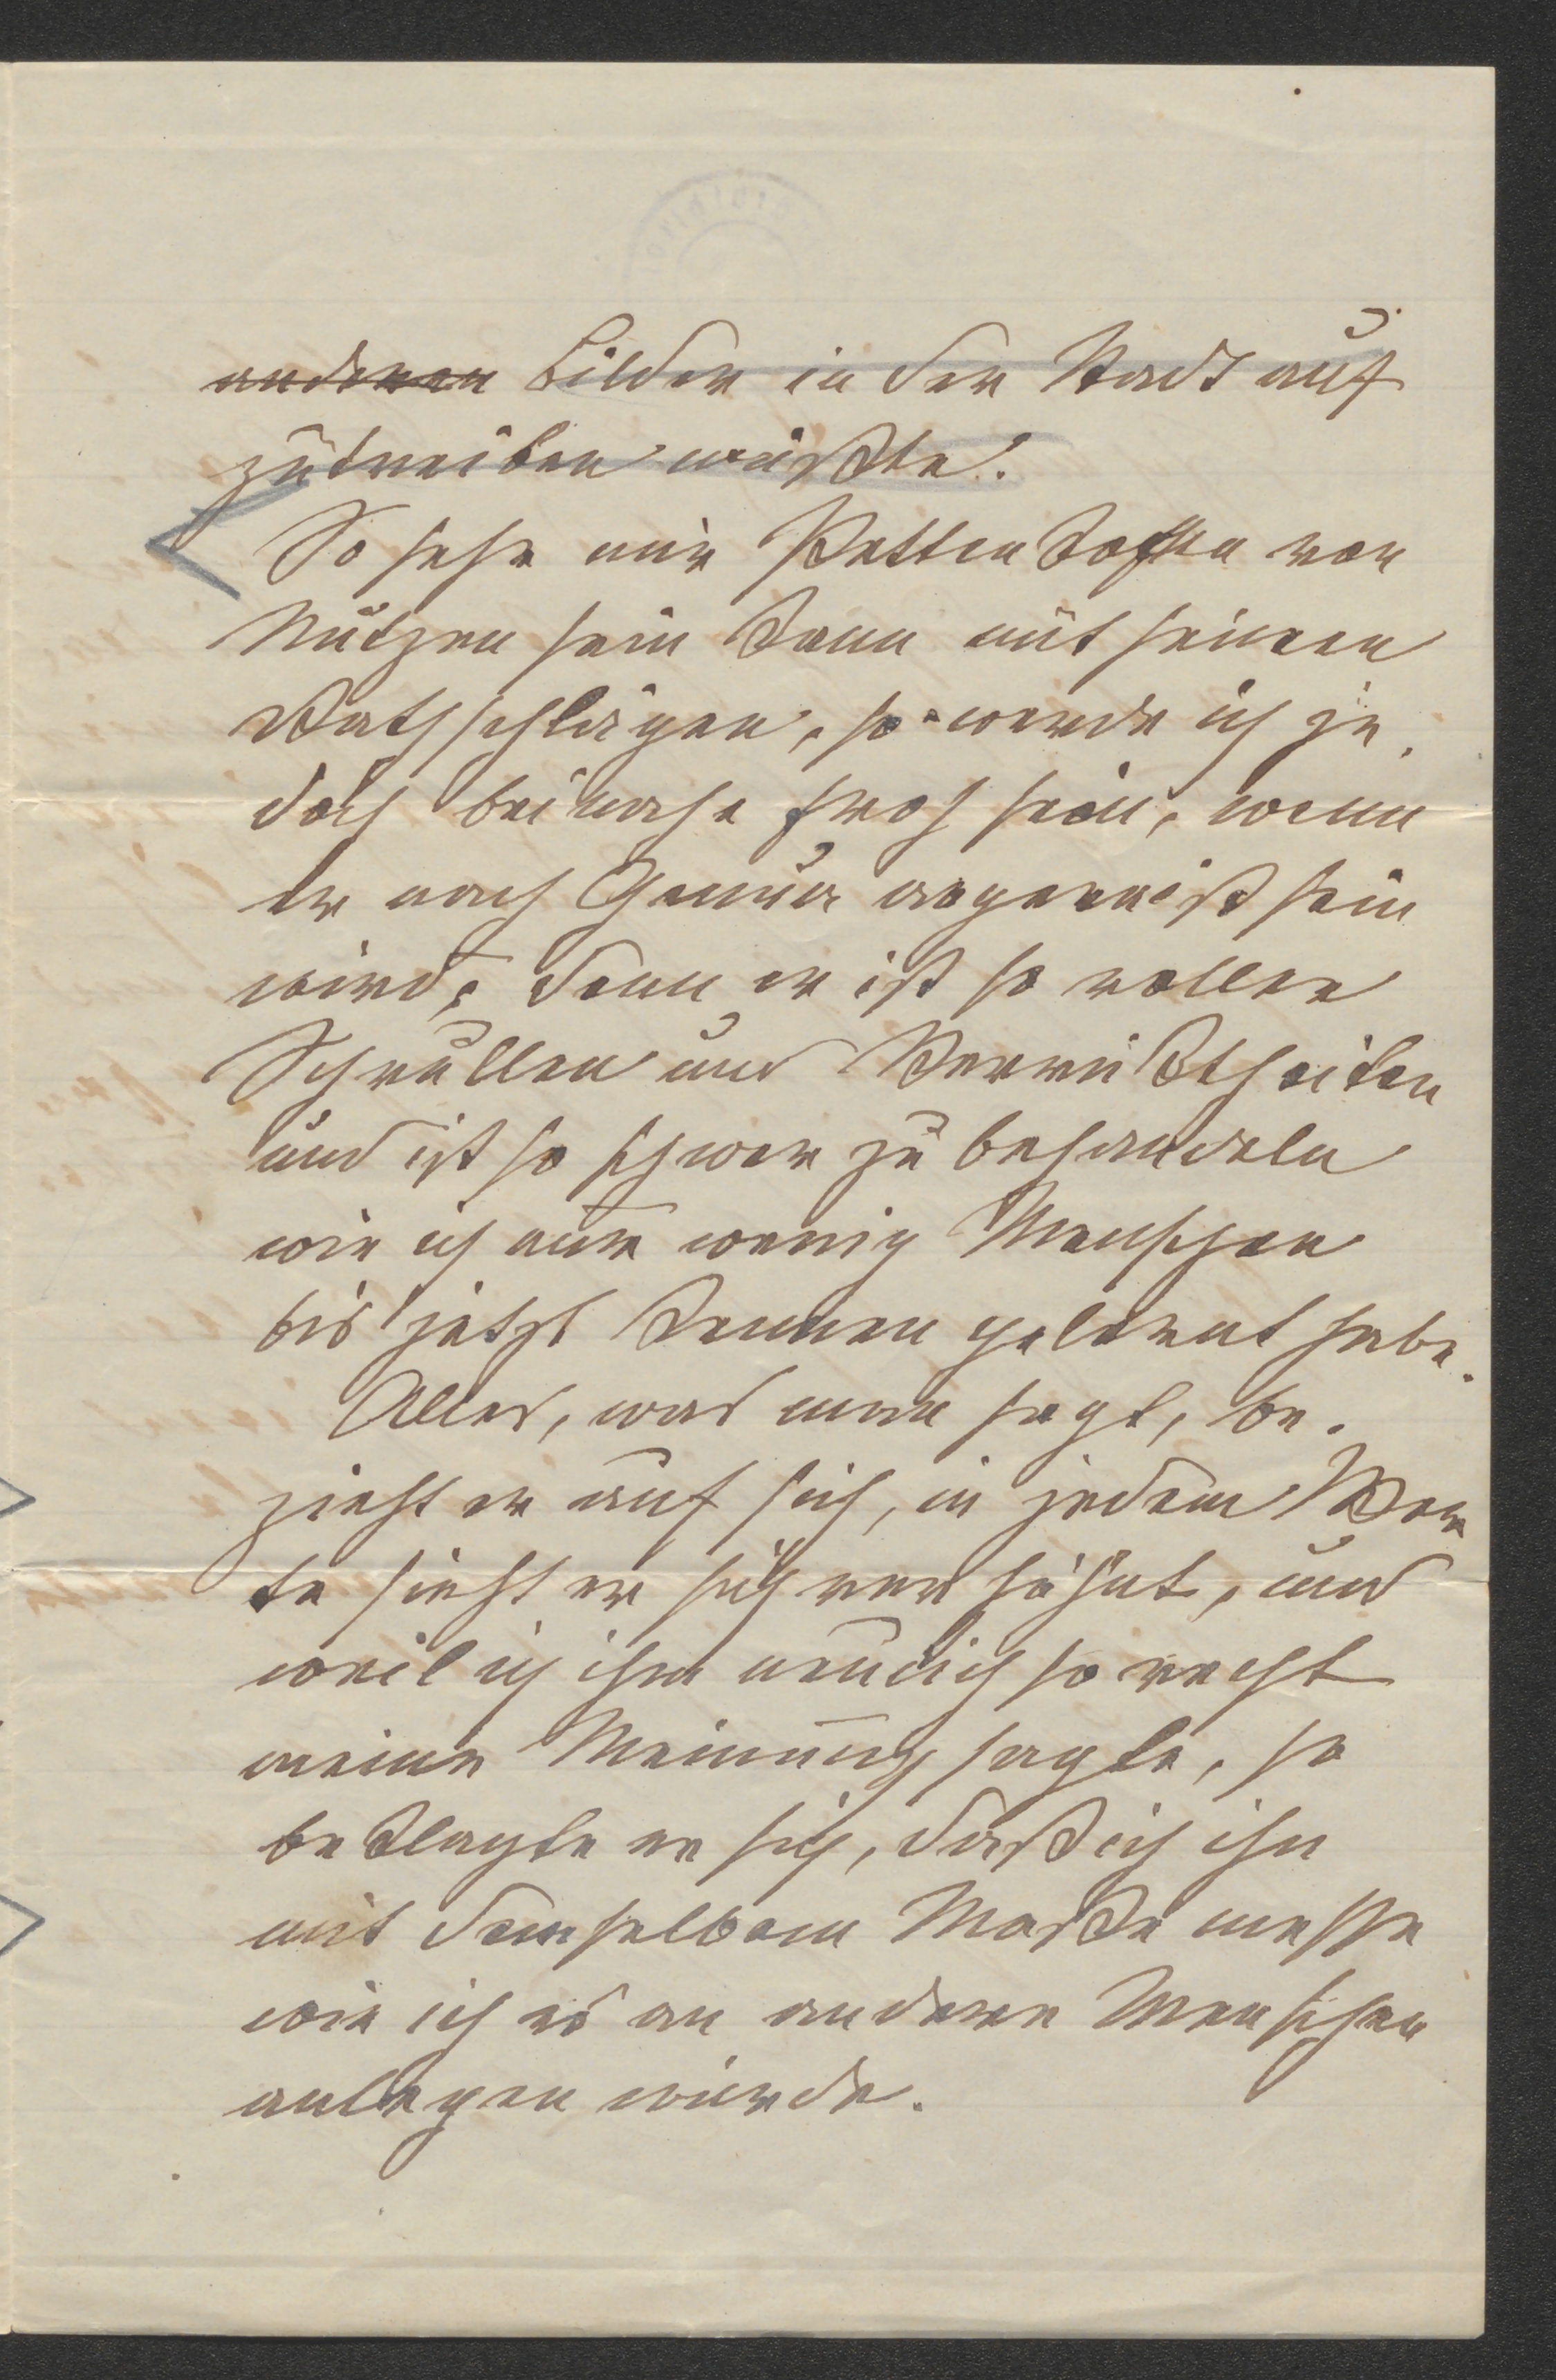 anderen Bilder in der Stadt auf
zutreiben wüßte.
So sehr mir Pettenkofen von
Nutzen sein kann mit seinen
Rathschlägen, so werde ich je-
doch beinahe froh sein, wenn
er nach Genua abgereist sein
wird, denn er ist so voller
Schrullen und Verrücktheiten
und ist so schwer zu behandeln
wie ich nur wenig Menschen
bis jetzt kennen gelernt habe.
Alles, was man sagt, be-
zieht er auf sich, in jedem Wor
te sieht er sich verhöhnt, und
weil ich ihm neulich so recht
meine Meinung sagte, so
beklagte er sich, daß ich ihn
mit demselbem Maße messe
wie ich es an anderen Menschen
anlegen würde.